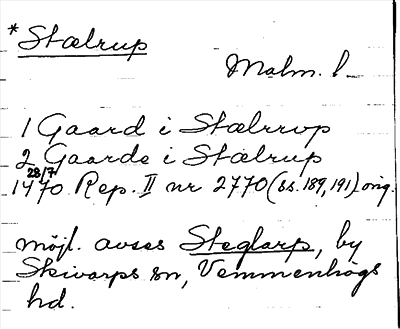 * Stælrup
Malm. l
1 Gaard i Stælrrup
2 Gaarde i Stælrup
28/7
1470 Rep. II nr 2770 (ss. 189, 191) orig.
möjl. avses Steglarp, by
Skivarps sn, Vemmenhögs
hd.